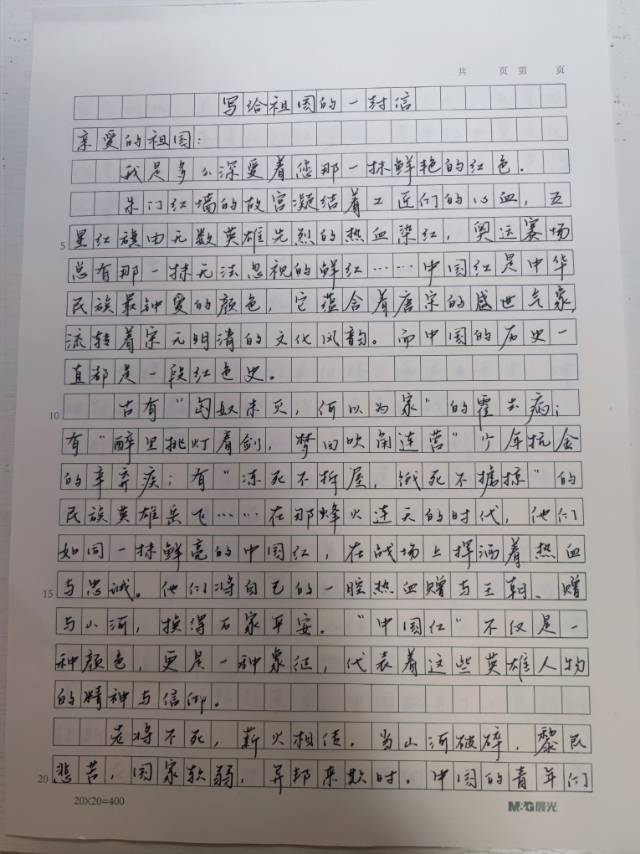 共 页 第 页
写给祖国的一封信
亲爱的祖国：
我是多么深爱着您那一抹鲜艳的红色。
朱门红墙的故宫凝结着工匠们的心血，五
星红旗由无数英雄先烈的热血染红，奥运赛场
5
总有那一抹无法忽视的鲜红……中国红是中华
民族最钟爱的颜色，它蕴含着唐宋的盛世气象，
流转着宋元明清的文化风韵。而中国的历史一
直都是一段红色史。
10
古有“匈奴未灭，何以为家”的霍去病；
有“醉里挑灯看剑，梦回吹角连营”少年抗金
的辛弃疾；有“冻死不拆屋，饿死不掳掠”的
民族英雄岳飞……在那烽火连天的时代，他们
如同一抹鲜亮的中国红，在战场上挥洒着热血
15
与忠诚。他们将自己的一腔热血赠与王朝、赠
与山河，换得石家平安。“中国红”不仅是一
种颜色，更是一种象征，代表着这些英雄人物
的精神与信仰。
老将不死，薪火相传。当山河破碎，黎民
20
悲苦，国家软弱，异邦来欺时，中国的青年们
20×20=400
M&G晨光